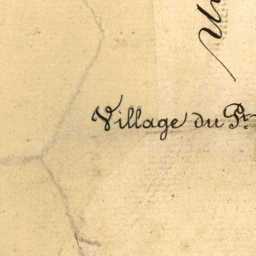 Village du P.